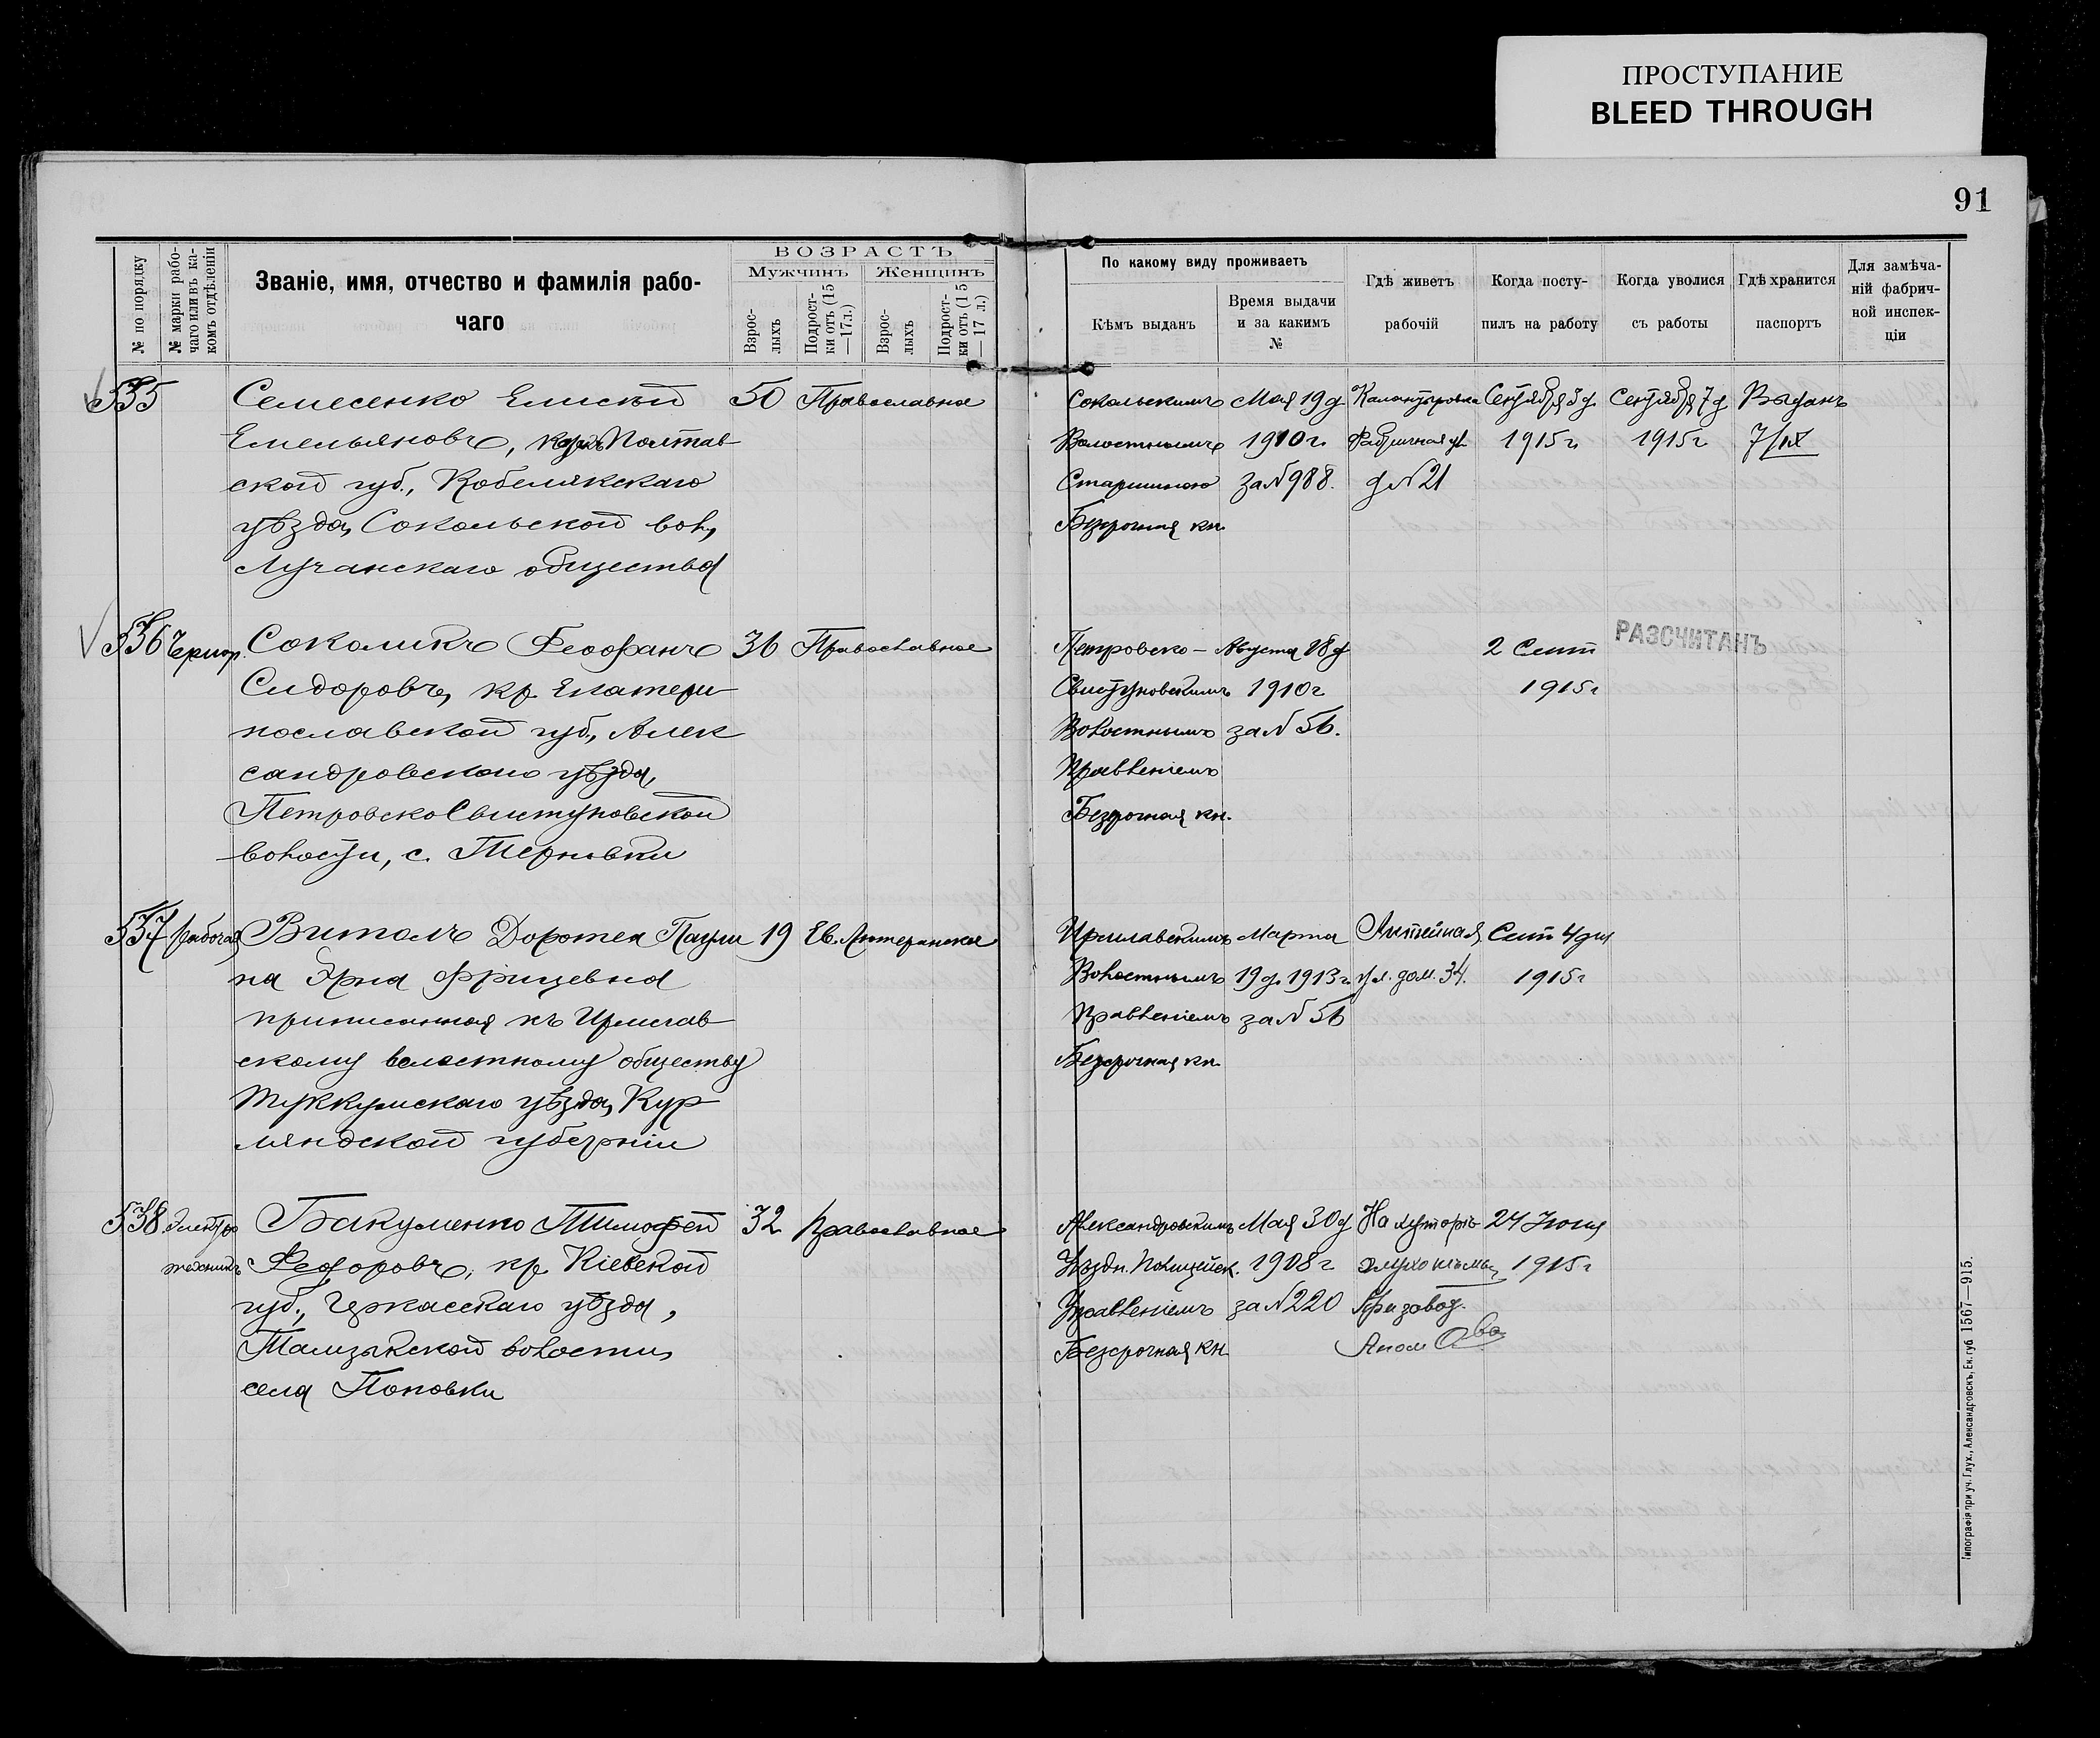 ПРОСТУПАНИЕ
BLEED THROUGH
91
№ по порядку
№ марки рабо-
чаго или въ ка-
комъ отдѣленіи
Званіе, имя, отчество и фамилія рабо-
чаго
ВОЗРАСТЪ
Мужчинъ
Женщинъ
Взрос-
лыхъ
Подрост-
ки отъ (15
—17 л.)
Взрос-
лыхъ
Подрост-
ки отъ (15
—17 л.)
По какому виду проживаетъ
Кѣмъ выданъ
Время выдачи
и за какимъ
№
Гдѣ живетъ
рабочій
Когда посту-
пилъ на работу
Когда уволися
съ работы
Гдѣ хранится
паспортъ
Для замѣча-
ній фабрич-
ной инспек-
ціи
535
Семесенко Елисѣй
Емельяновъ, Полтав
ской губ., Кобелякскаго
уѣзда, Сокольской вол,
Лучанскаго общества
50 Православное
Сокольскимъ
Волостнымъ
Старшиною
Безсрочная кн.
Мая 19 д
1910 г.
за № 988.
Калантыровка
Фабричная ул
д № 21
Сентября 3 д.
1915 г.
Сентября 7 д
1915 г
Выданъ
7/IX
536 Чернор.
Соколикъ Феофанъ
Сидоровъ, кр. Екатери
нославской губ., Алек
сандровскаго уѣзда,
Петровско Свистуновской
волости, с. Терновки
36 Православное
Петровско-
Свистуновскимъ
Волостнымъ
Правленіемъ
Безсрочная кн.
Августа 28 д
1910 г
за № 56.
2 Сент
1915 г
РАЗСЧИТАНЪ
537 рабочая
Витолъ Доротея Паули
на Эрна Фрицевна
приписанная къ Ирмлав
скому волостному обществу
Туккумскаго уѣзда, Кур
ляндской губерніи
19 Ев. Лютеранское
Ирмлавскимъ
Волостнымъ
Правленіемъ
Безсрочная кн
Марта
19 д. 1913 г.
за № 56
Литейная
ул. дом. 34.
Сент 4 дня
1915 г
538 Электро
техникъ
Бакуменко Тимофей
Федоровъ, кр. Кіевской
губ., Черкасскаго уѣзда,
волости,
села Поповки
32 Православное
Александровскимъ
Уѣздн. Полицейск.
Управленіемъ
Безсрочная кн
Мая 30 д
1908 г
за № 220
На хуторѣ
При завод.
24 Іюня
1915 г
Типографія при уч. Глух., Александровскъ, Ек. губ. 1567—915.